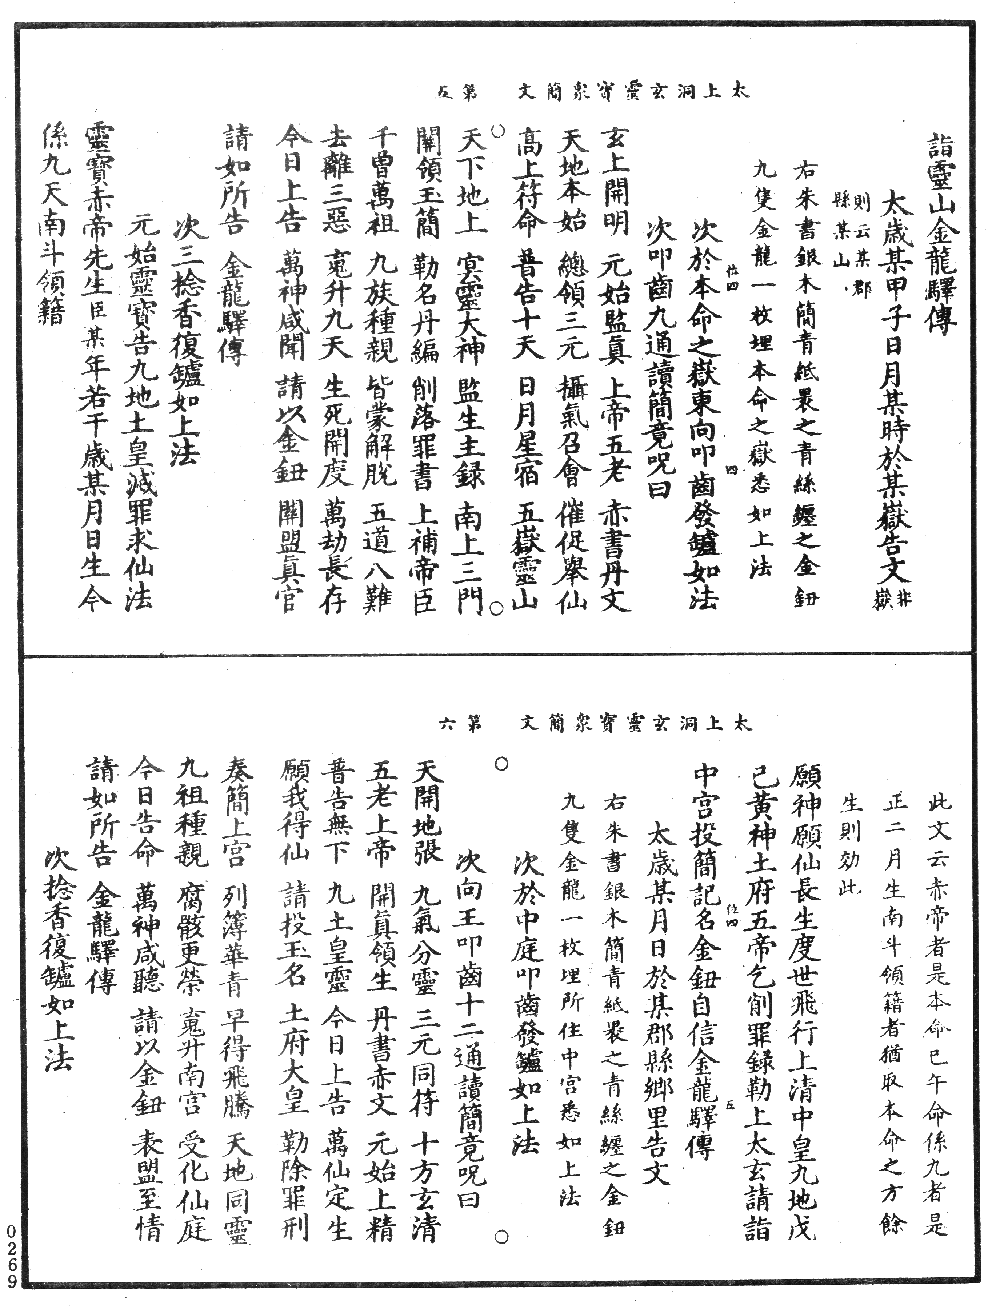 詣靈山金龍驛傳
太歲某甲子日月某時於某嶽告文非嶽
則云某郡
縣某山
右朱書銀木簡青紙裹之青絲纏之金鈕
九隻金龍一枚埋本命之嶽悉如上法
位四
次於本命之嶽東向叩齒發鑪如法
四
次叩齒九通讀簡竟呪曰
玄上開明 元始監眞 上帝五老 赤書丹文
天地本始 總領三元 攝氣召會 催促舉仙
高上符命 普告十天 日月星宿 五嶽靈山
太上洞玄靈寶衆簡文 第五
天下地上 冥靈大神 監生主録 南上三門
關領玉簡 勒名丹編 削落罪書 上補帝臣
千曾萬祖 九族種親 皆蒙解脫 五道八難
去離三惡 䰟升九天 生死開度 萬劫長存
今日上告 萬神咸聞 請以金鈕 關盟眞官
請如所告 金龍驛傳
次三捻香復鑪如上法
元始靈寶告九地土皇滅罪求仙法
靈寶赤帝先生臣某年若干歲某月日生今
係九天南斗領籍
此文云赤帝者是本命巳午命係九者是
正二月生南斗領籍者猶取本命之方餘
生則効此
願神願仙長生度世飛行上清中皇九地戊
己黃神土府五帝乞削罪録勒上太玄請詣
中宮投簡記名金鈕自信金龍驛傳
位四
五
太歲某月日於某郡縣鄉里告文
右朱書銀木簡青紙裹之青絲纏之金鈕
九隻金龍一枚埋所住中宮悉如上法
次於中庭叩齒發鑪如上法
太上洞玄靈寶衆簡文 第六
次向王叩齒十二通讀簡竟呪曰
天開地張 九氣分靈 三元同符 十方玄清
五老上帝 開眞領生 丹書赤文 元始上精
普告無下 九土皇靈 今日上告 萬仙定生
願我得仙 請投玉名 土府大皇 勒除罪刑
奏簡上宮 列簿華青 早得飛騰 天地同靈
九祖種親 腐骸更榮 䰟升南宮 受化仙庭
今日告命 萬神咸聽 請以金鈕 表盟至情
請如所告 金龍驛傳
次捻香復鑪如上法
0269